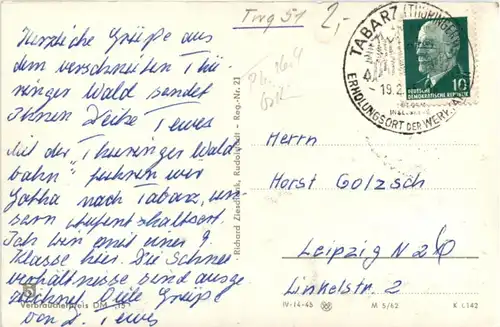 Herzliche Grüße aus
dem verschneiten Thü-
ringer Wald sendet
Ihnen Tewes
Mit der "Thüringer Wald-
bahn" fuhren wir
Gotha nach Tabarz, un-
sern Aufenthaltsort.
Ich bin mit einer 9.
Klasse hier. Die Schnee-
verhältnisse sind ausge-
zeichnet. Viele Grüße
von Tewes
Verbraucherpreis DM -,15
Richard Zieschank, Rudolstadt - Reg.-Nr. 21
Twg 51
2,-
TABARZ (THÜRINGER
- 19.2
ERHOLUNGSORT DER WERK
DEUTSCHE
DEMOKRATISCHE REPUBLIK
10
Herrn
Horst Golzsch
Leipzig N 26
Linkelstr. 2
IV-14-45
M 5/62
K L142